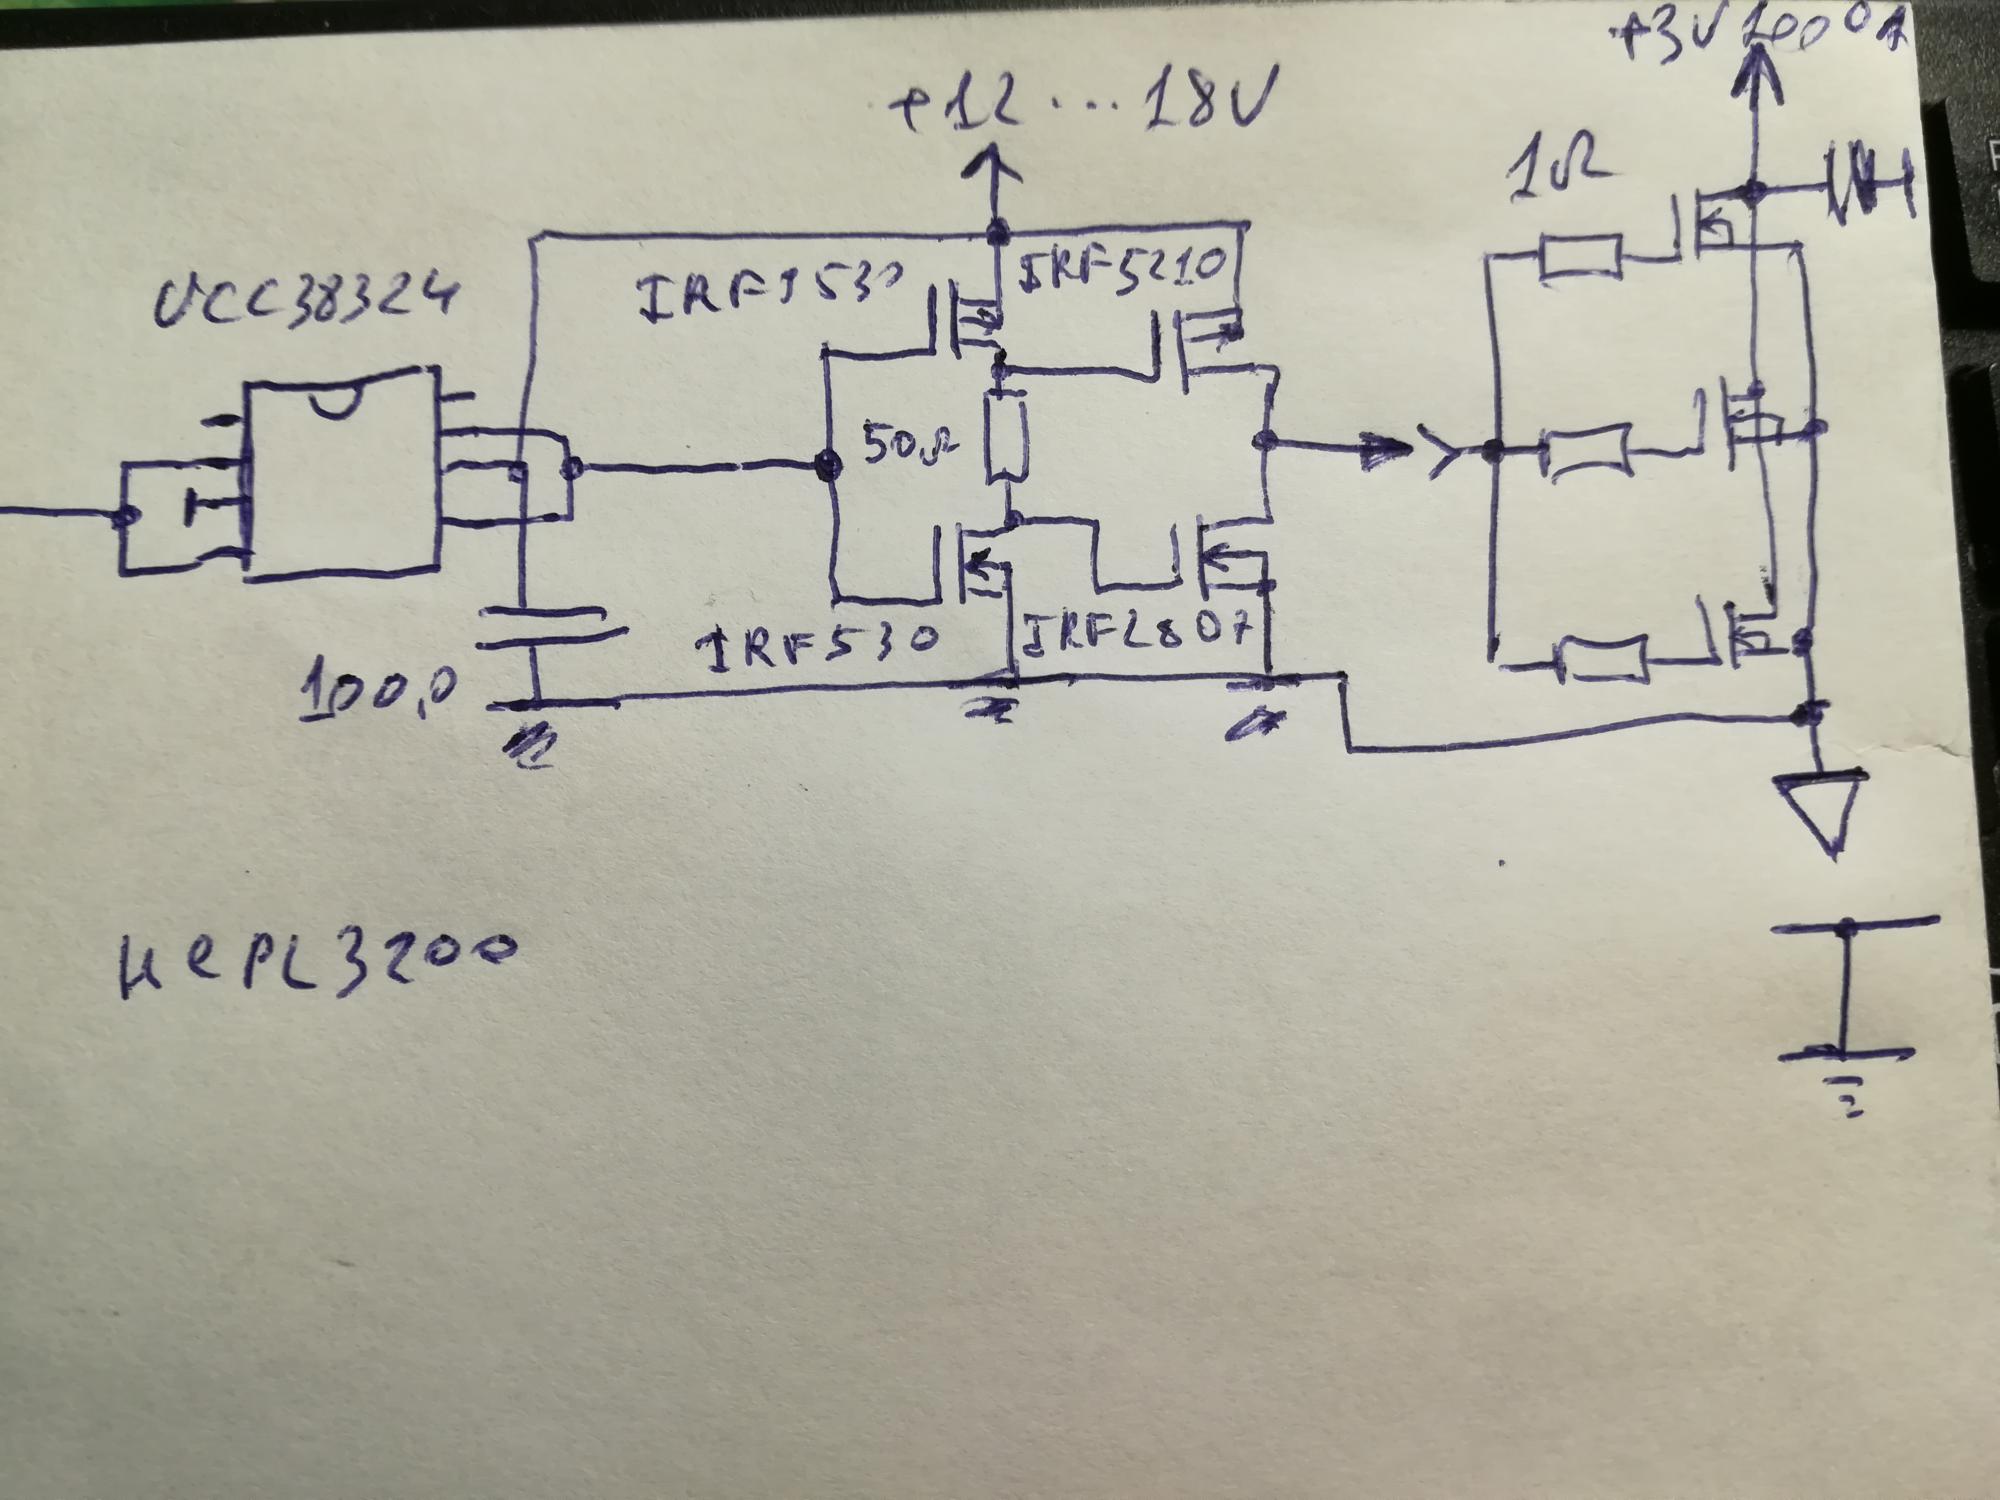 +3V 1000A
+12 ... 18V
1Ω
UCC38324
IRF9530
IRF5210
50Ω
100,0
IRF530
IRF2807
HCPL3200